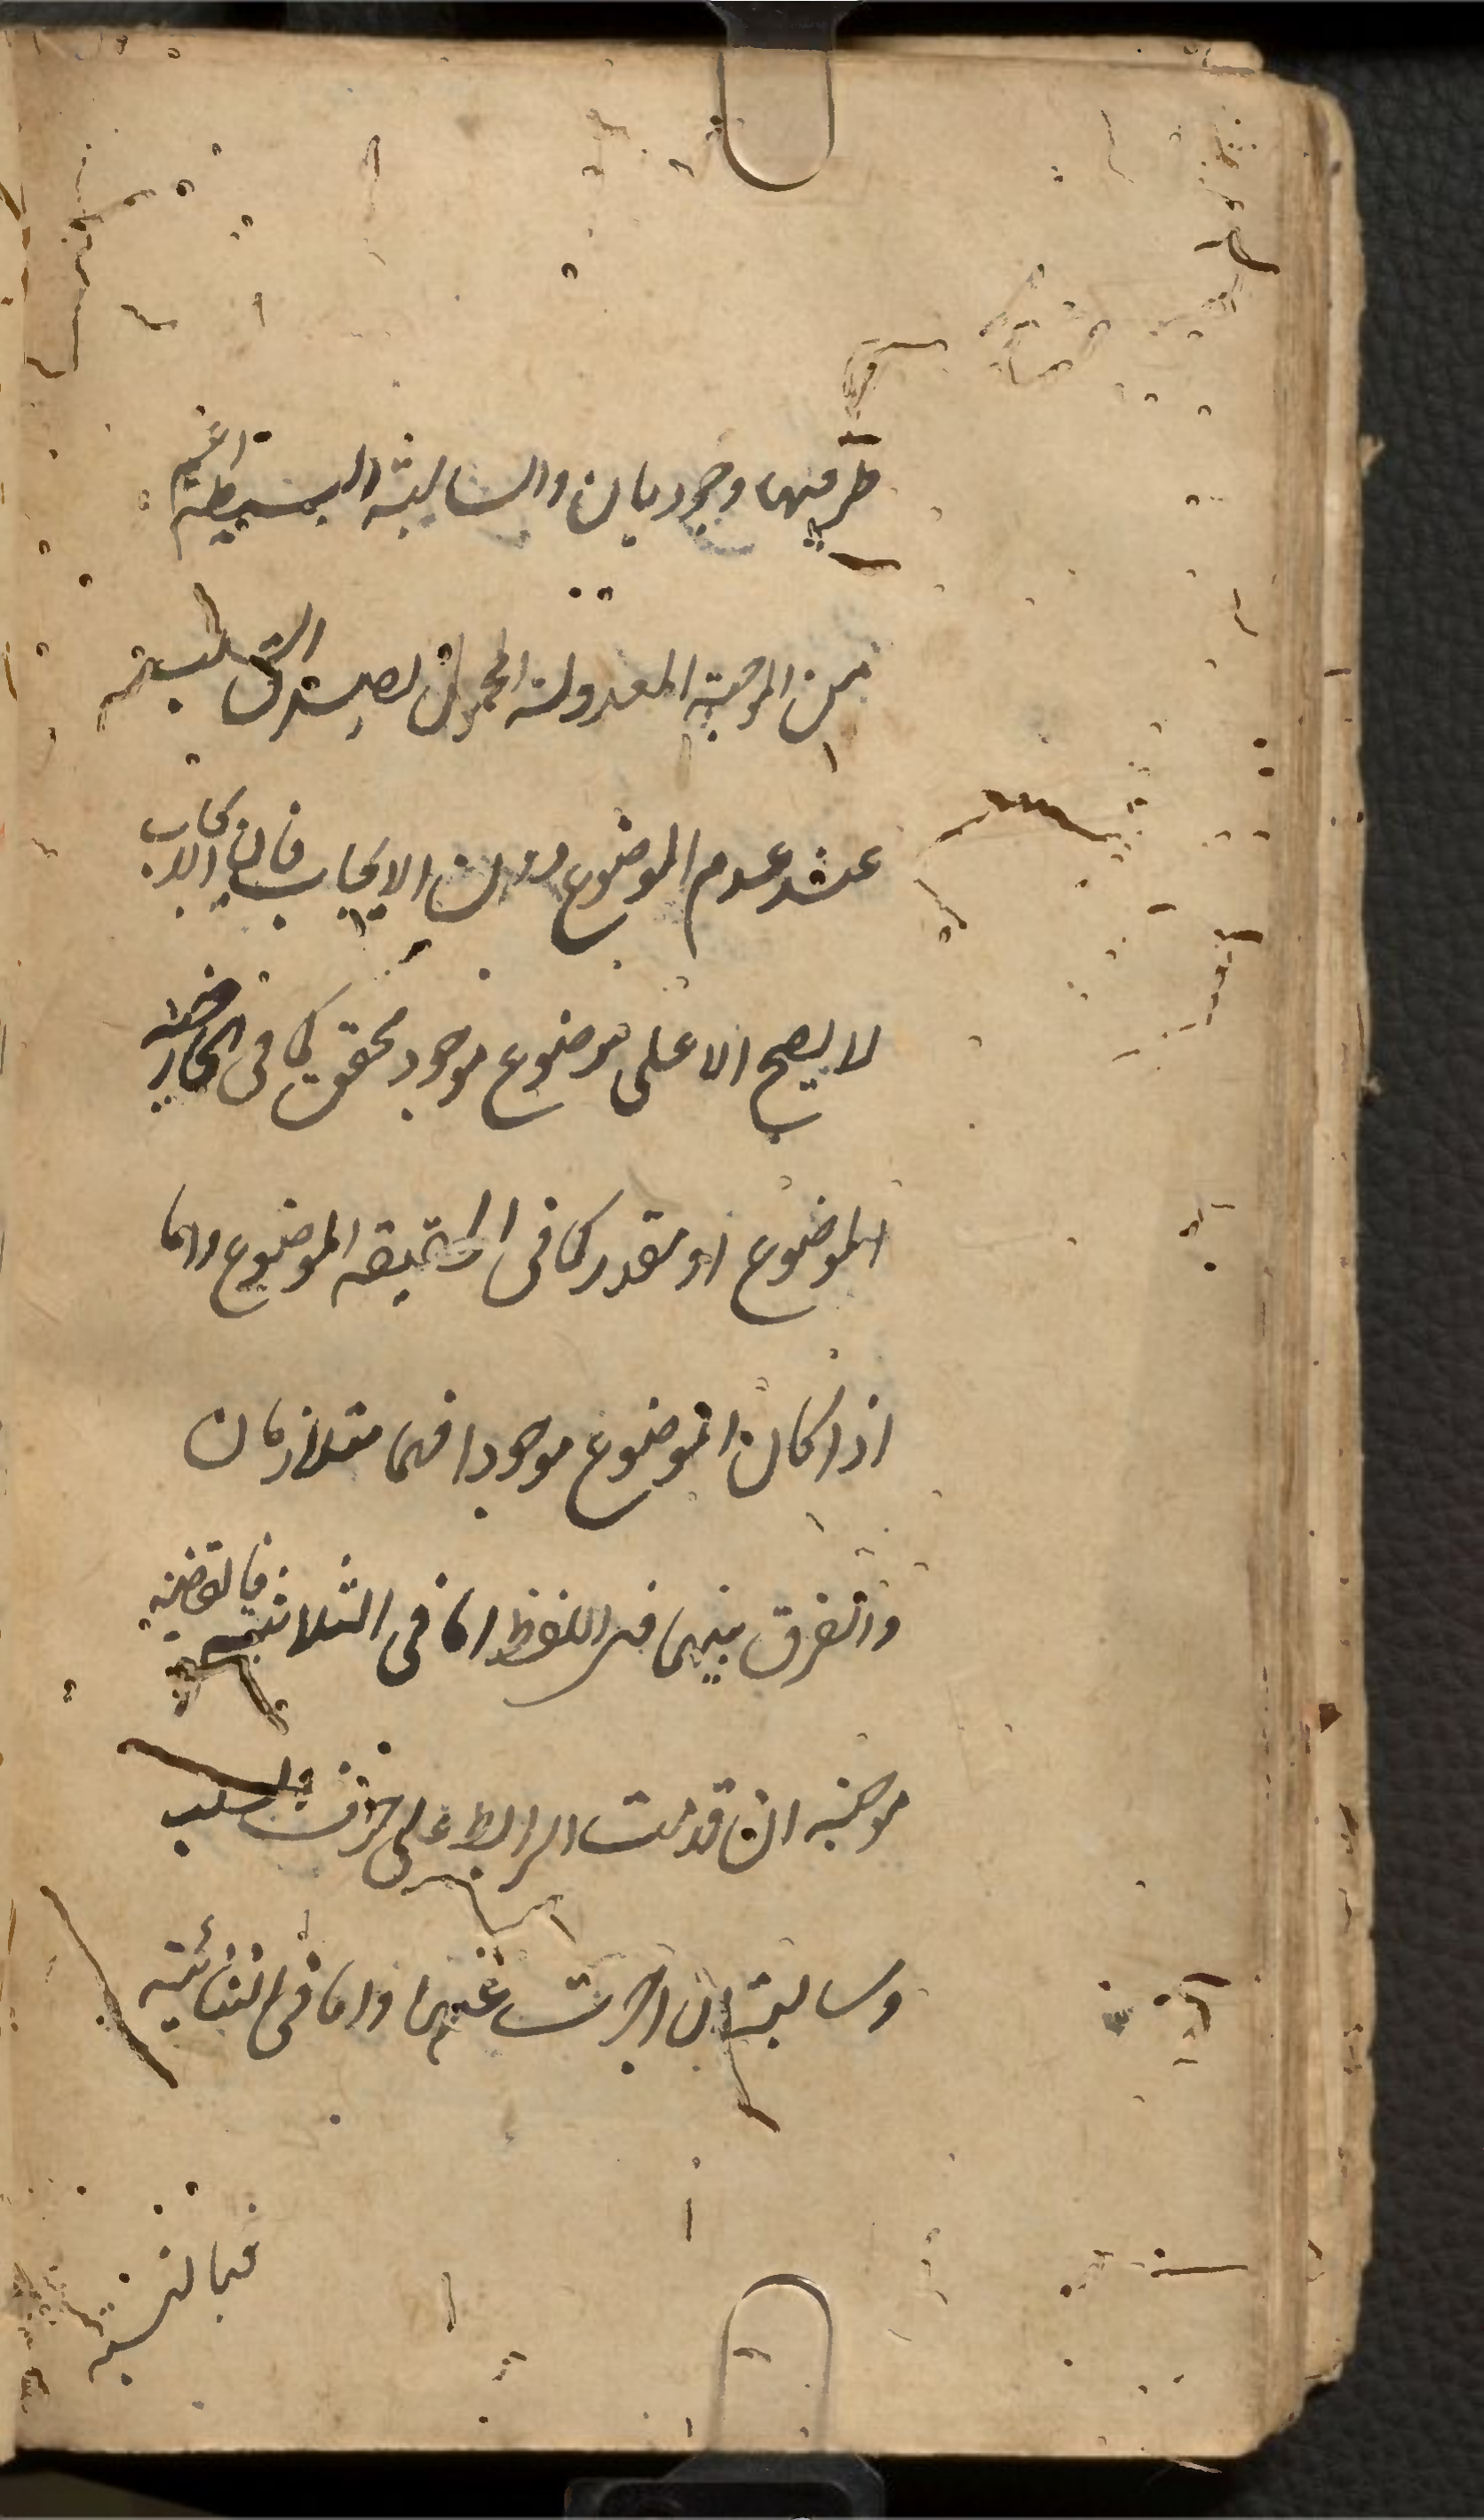 طرفيها وجوديان والسالبة البسيطة اعم
من الموجبة المعدولة المحمول لصدق السلب
عند عدم الموضوع دون الايجاب فان الايجاب
لا يصح الا على موضوع موجود محقق كما في الخارجية
الموضوع او مقدر كما في الحقيقة الموضوع واما
اذا كان الموضوع موجودا فهما متلازمان
والفرق بينهما في اللفظ اما في الثلاثية فالقضية
موجبة ان قدمت الرابط على حرف السلب
وسالبة ان اخرت عنها واما في الثنائية
فبالنية